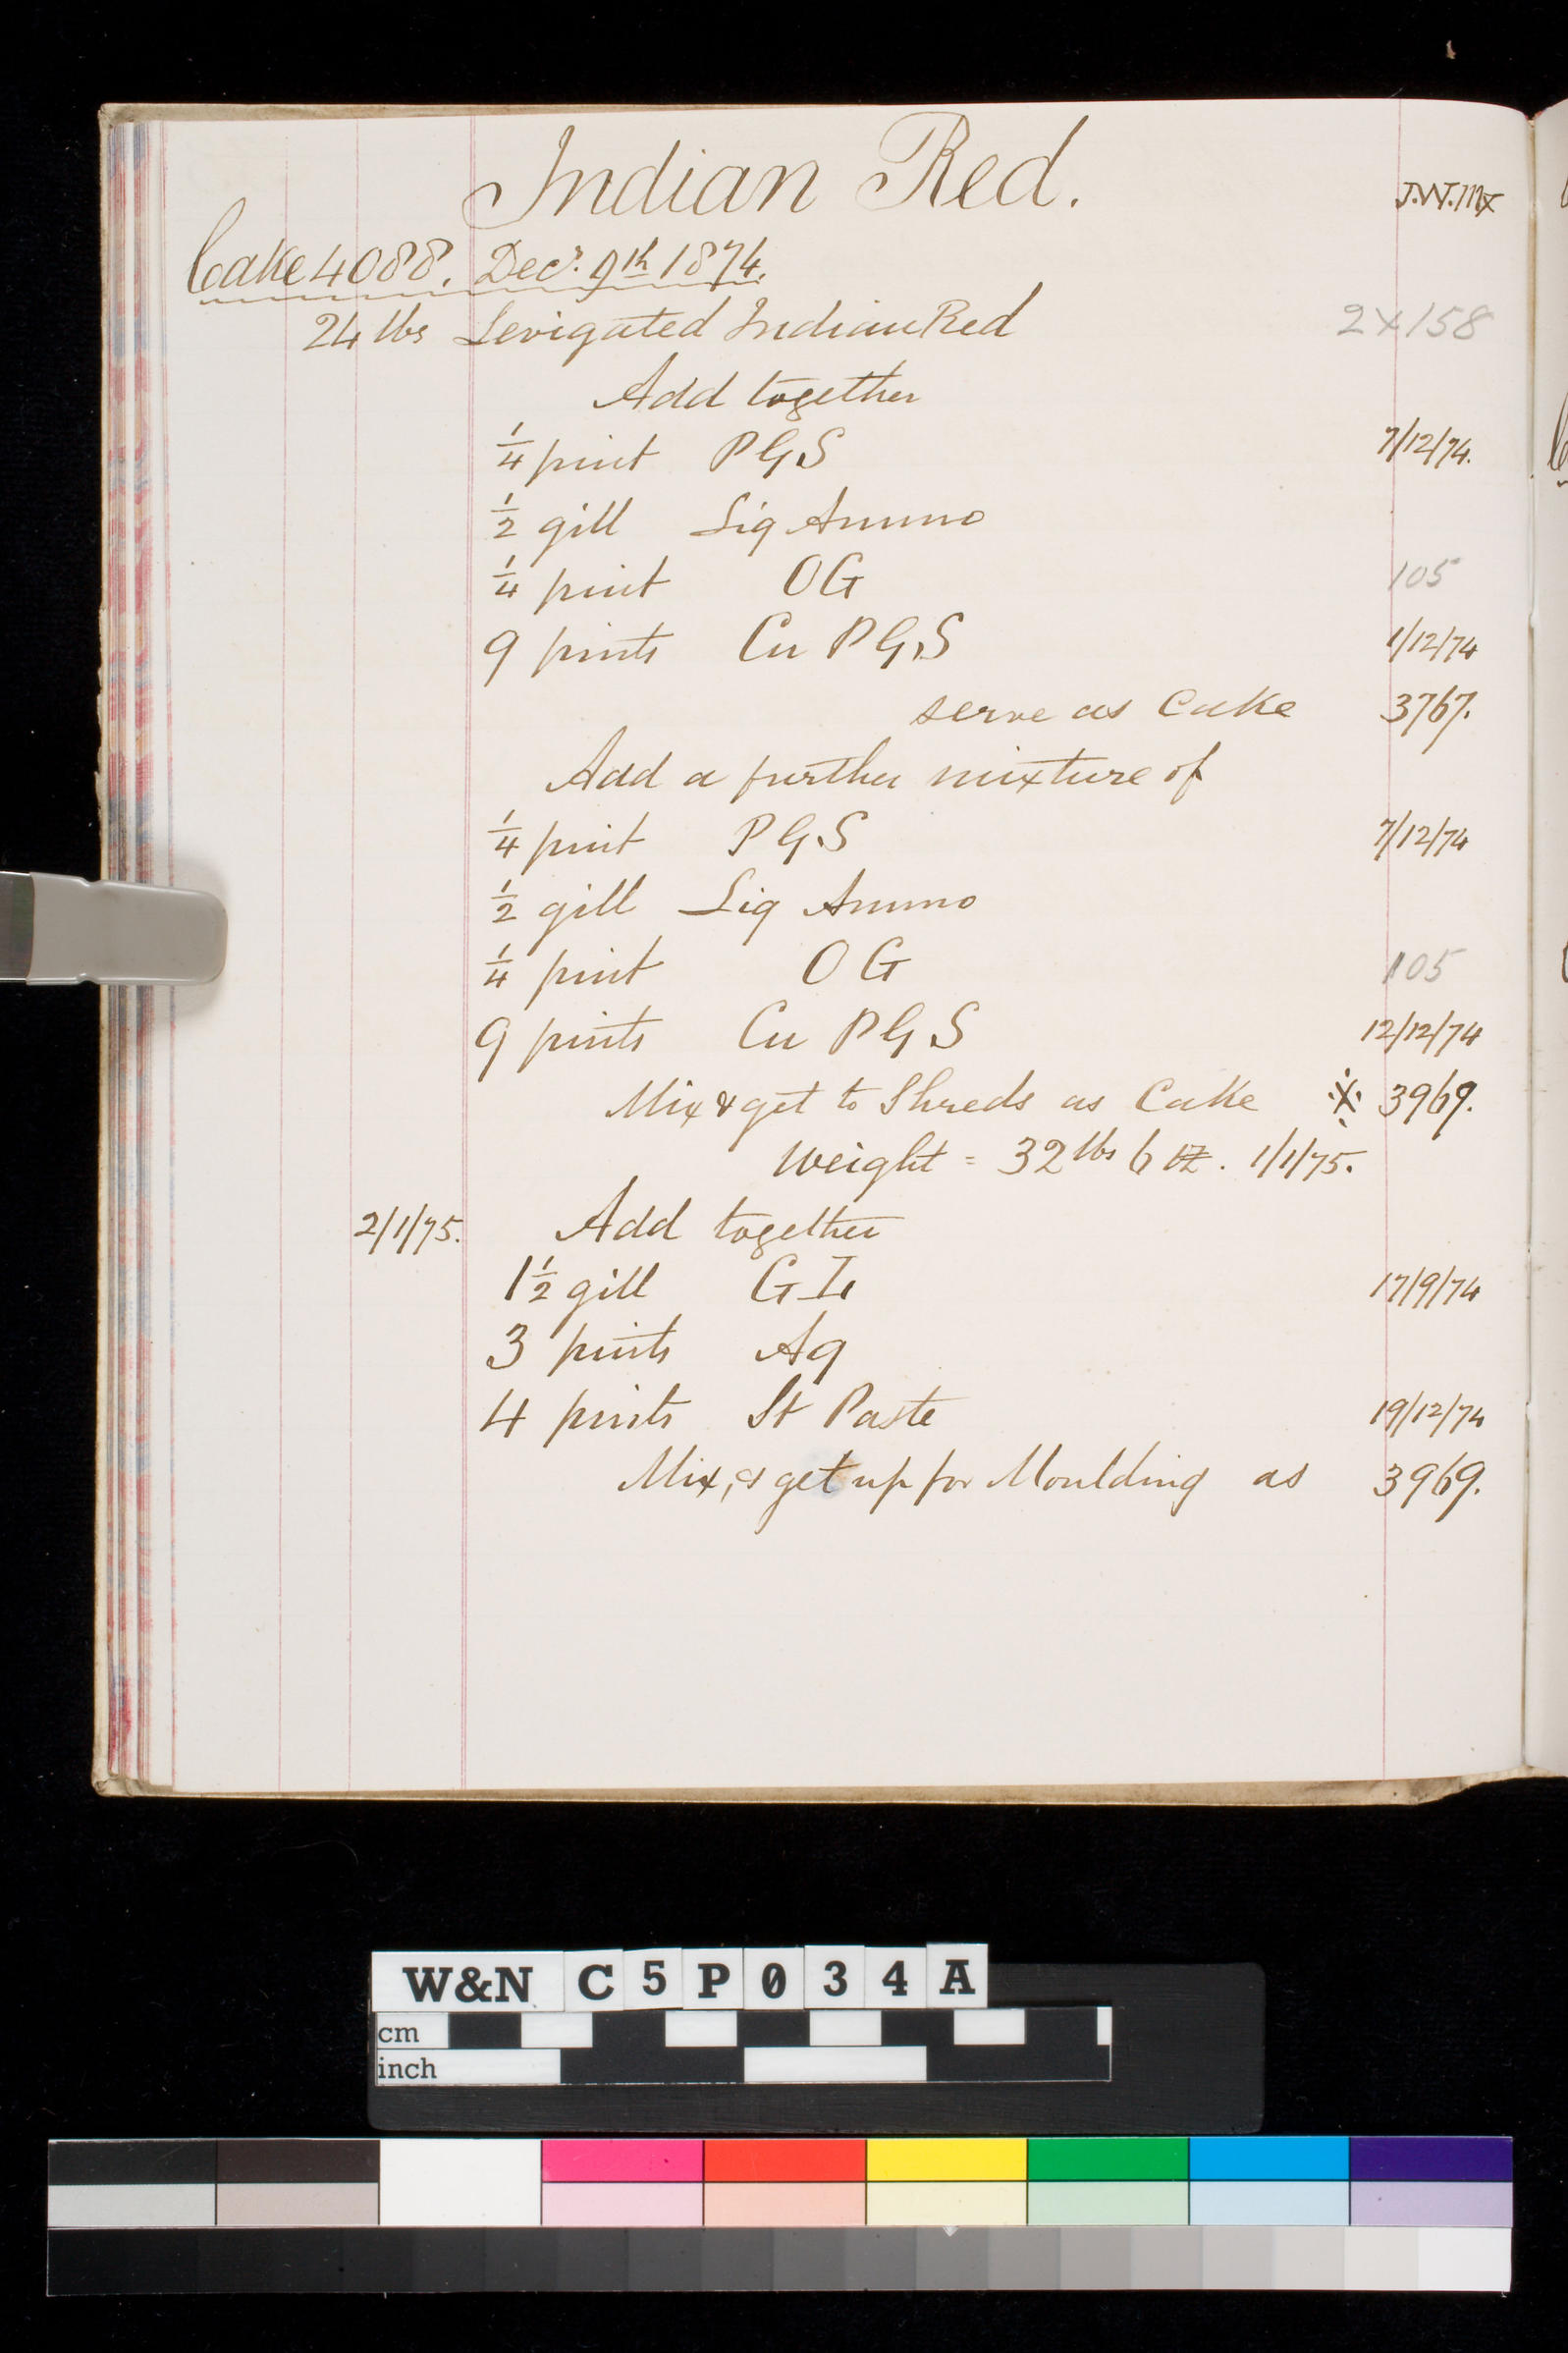 Indian Red. J.W.Mx
Cake 4088. Decr. 9th 1874.
24 lbs Levigated Indian Red 2x158
Add together
1/4 pint PGS 7/12/74.
1/2 gill Liq Ammo
1/4 pint OG 105
9 pints Cu PGS 1/12/74
serve as Cake 3767.
Add a further mixture of
1/4 pint PGS 7/12/74
1/2 gill Liq Ammo
1/4 pint OG 105
9 pints Cu PGS 12/12/74
Mix & get to Shreds as Cake ※ 3969.
Weight = 32 lbs 6 oz. 1/1/75.
2/1/75. Add together
1 1/2 gill GL 17/9/74
3 pints Aq
4 pints St Paste 19/12/74
Mix, & get up for Moulding as 3969.
W&N C5P034A
cm
inch